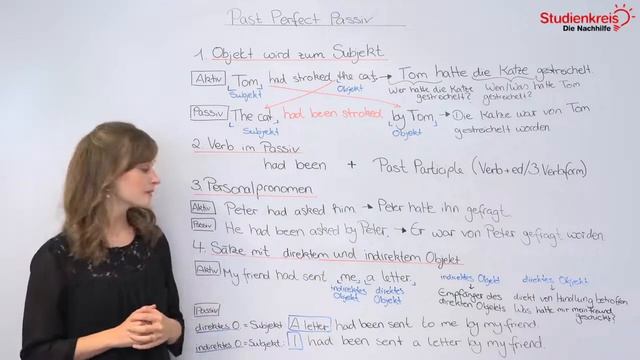 Past Perfect Passiv
Studienkreis
Die Nachhilfe
1. Objekt wird zum Subjekt
Aktiv Tom, had stroked, the cat, → Tom hatte die Katze gestreichelt.
Subjekt Objekt Wer hatte die Katze gestreichelt? Wen/Was hatte Tom gestreichelt?
Passiv The cat, had been stroked by Tom, → Die Katze war von Tom gestreichelt worden
Subjekt Objekt
2. Verb im Passiv
had been + Past Participle (Verb+ed/3.Verbform)
3. Personalpronomen
Aktiv Peter had asked him → Peter hatte ihn gefragt.
Passiv He had been asked by Peter. → Er war von Peter gefragt worden.
4. Sätze mit direktem und indirektem Objekt
Aktiv My friend had sent me, a letter.
indirektes Objekt direktes Objekt
indirektes Objekt direktes Objekt
Empfänger des direkten Objekts direkt von Handlung betroffen
Was hatte mir mein Freund geschickt?
Passiv
direktes O. = Subjekt A letter had been sent to me by my friend.
indirektes O. = Subjekt I had been sent a letter by my friend.